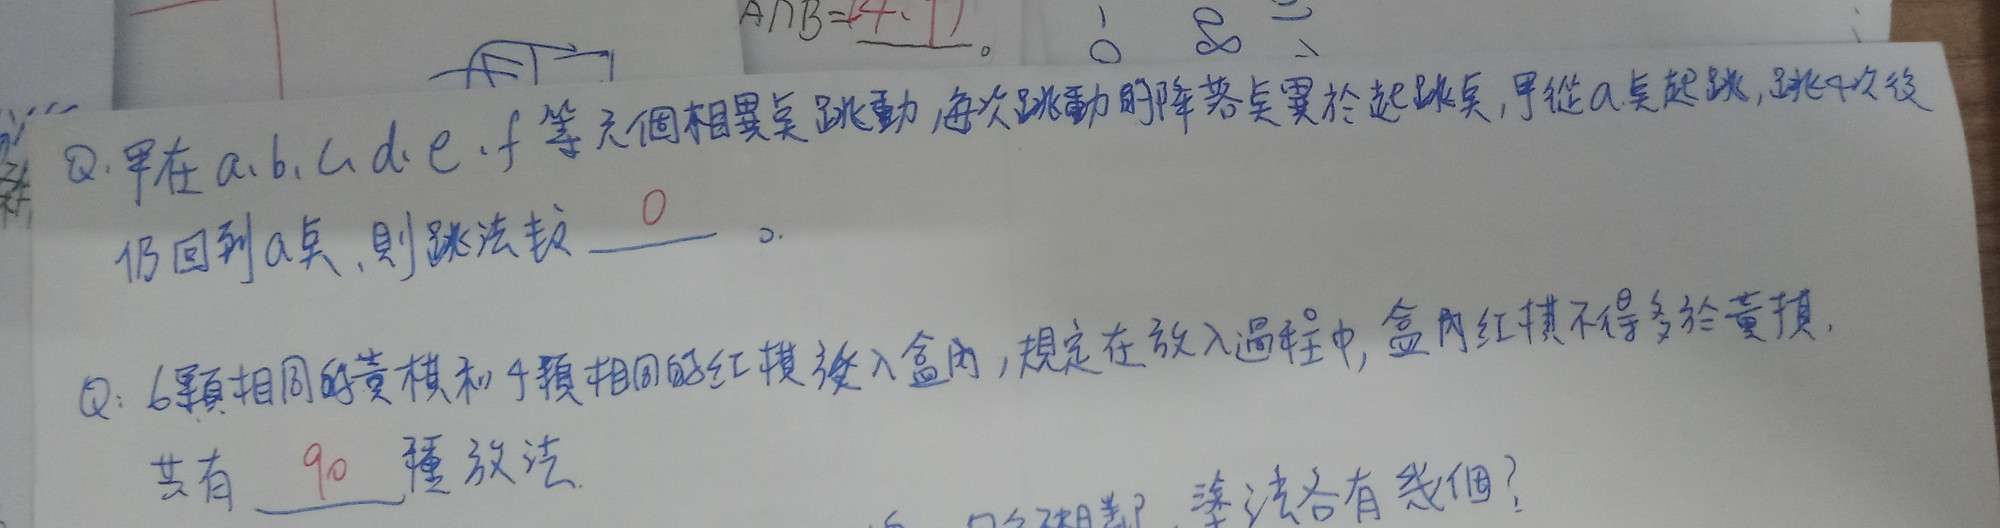 A∩B={4、7}。
Q. 甲在a、b、c、d、e、f等六個相異点跳動,每次跳動的降落点異於起跳点,甲從a点起跳,跳4次後
仍回到a点,則跳法有 0 。
Q: 6顆相同的黃棋和4顆相同的紅棋逐入盒內,規定在放入過程中,盒內紅棋不得多於黃棋,
共有 90 種放法.
塗法各有幾個?